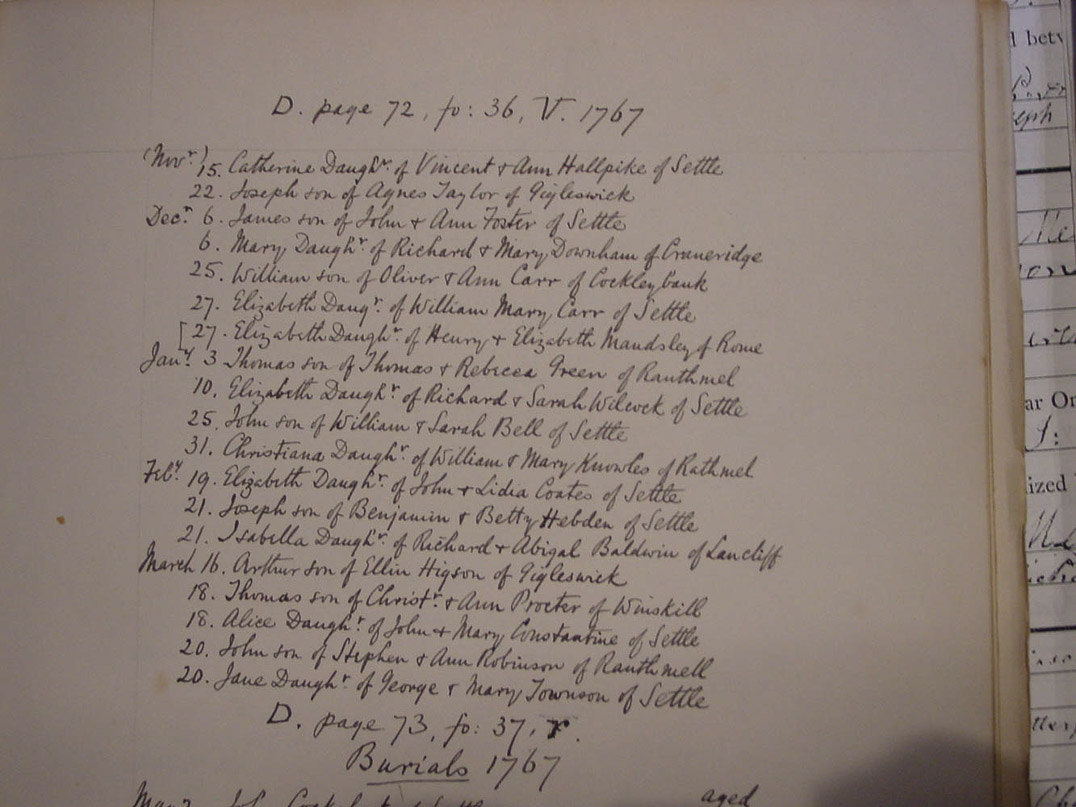 D. page 72, fo: 36, V. 1767
(Novr.) 15. Catherine Daughr. of Vincent & Ann Hallpike of Settle
22. Joseph son of Agnes Taylor of Gigleswick
Decr. 6. James son of John & Ann Foster of Settle
6. Mary Daughr. of Richard & Mary Downham of Craneridge
25. William son of Oliver & Ann Carr of Cockleybank
27. Elizabeth Daugr. of William Mary Carr of Settle
[27. Elizabeth Daughr. of Henry & Elizabeth Maudsley of Rome
Jany. 3 Thomas son of Thomas & Rebecca Green of Rauthmel
10. Elizabeth Daughr. of Richard & Sarah Wilcock of Settle
25. John son of William & Sarah Bell of Settle
31. Christiana Daughr. of William & Mary Knowles of Rathmel
Feby. 19. Elizabeth Daughr. of John & Lidia Coates of Settle
21. Joseph son of Benjamin & Betty Hebden of Settle
21. Isabella Daughr. of Richard & Abigal Baldwin of Lancliff
March 16. Arthur son of Ellin Higson of Gigleswick
18. Thomas son of Christr. & Ann Procter of Winskill
18. Alice Daughr. of John & Mary Constantine of Settle
20. John son of Stephen & Ann Robinson of Rauthmell
20. Jane Daughr. of George & Mary Townson of Settle
D. page 73, fo: 37, r.
Burials 1767
aged